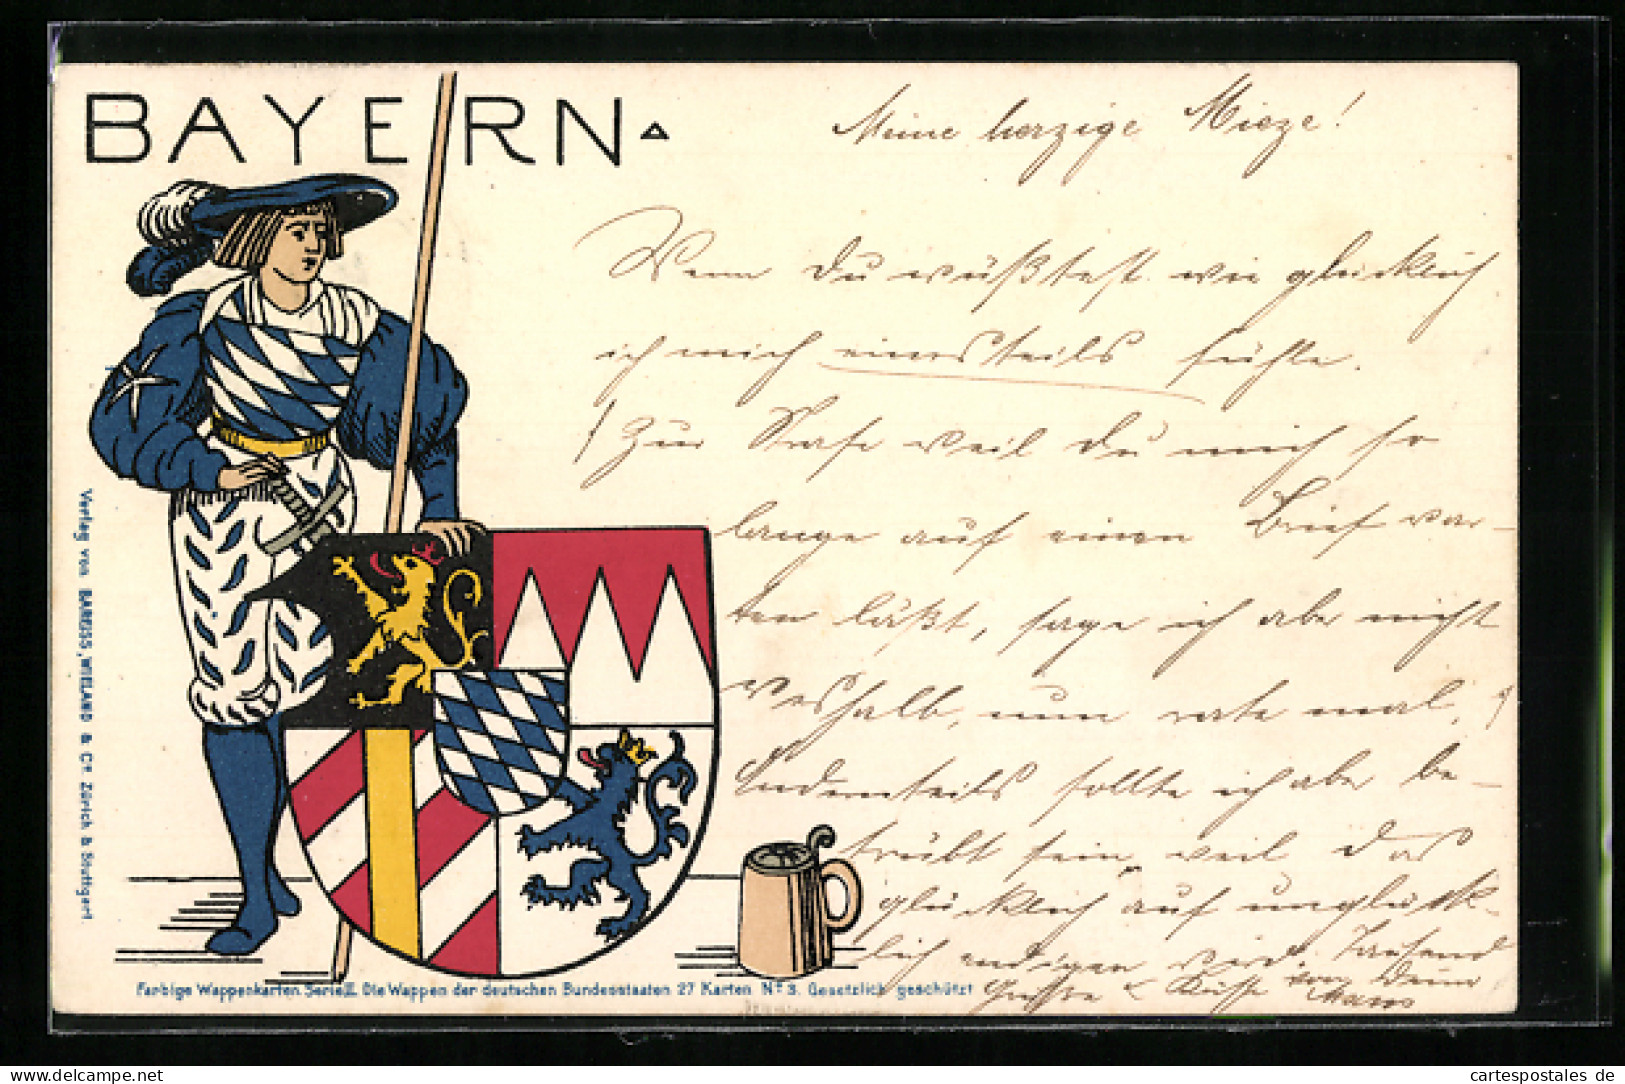 BAYERN
Meine herzige Mieze!
Wenn Du wüßtest wie glücklich
ich mich einesteils fühle.
(Zur Strafe weil Du mich so
lange auf einen Brief war-
ten läßt, sage ich aber nicht
weshalb, nun rate mal.)
Andernteils sollte ich aber be-
trübt sein, weil das
glücklich auf unglück-
lich endigen wird. Tausend
Grüsse & Küsse von Deinem
Hans
Verlag von BARUSS, WIELAND & Cie. Zürich & Stuttgart
Farbige Wappenkarten. Serie II. Die Wappen der deutschen Bundesstaaten 27 Karten No 3. Gesetzlich geschützt
cartespostales de